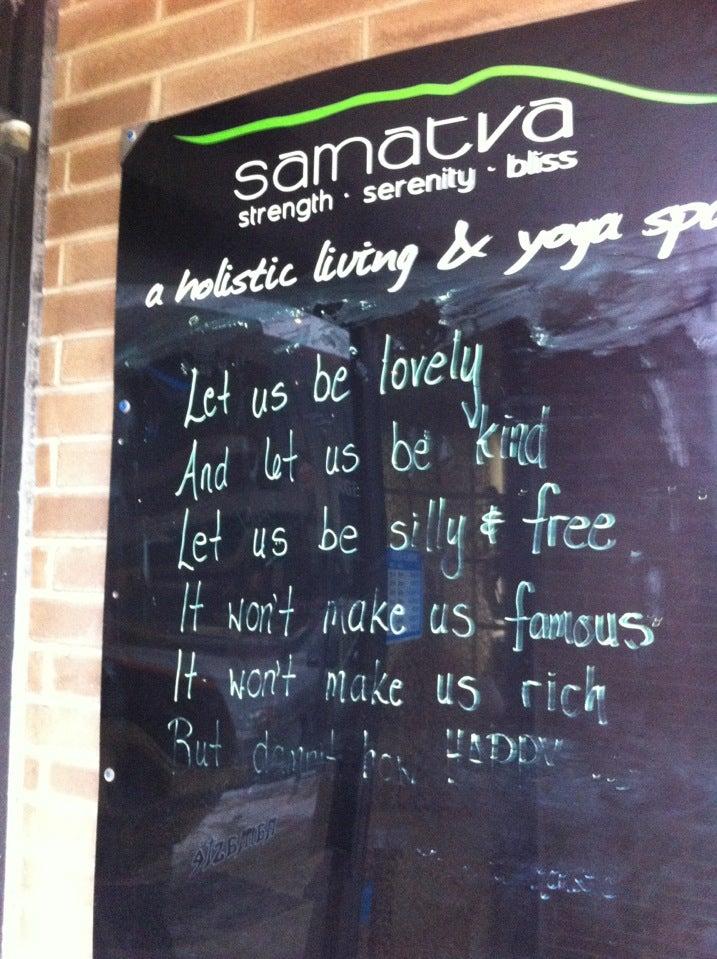 samatva
strength · serenity · bliss
a holistic living & yoga
Let us be lovely
And let us be kind
Let us be silly & free
It won't make us famous
It won't make us rich
But damnit how HAPPY